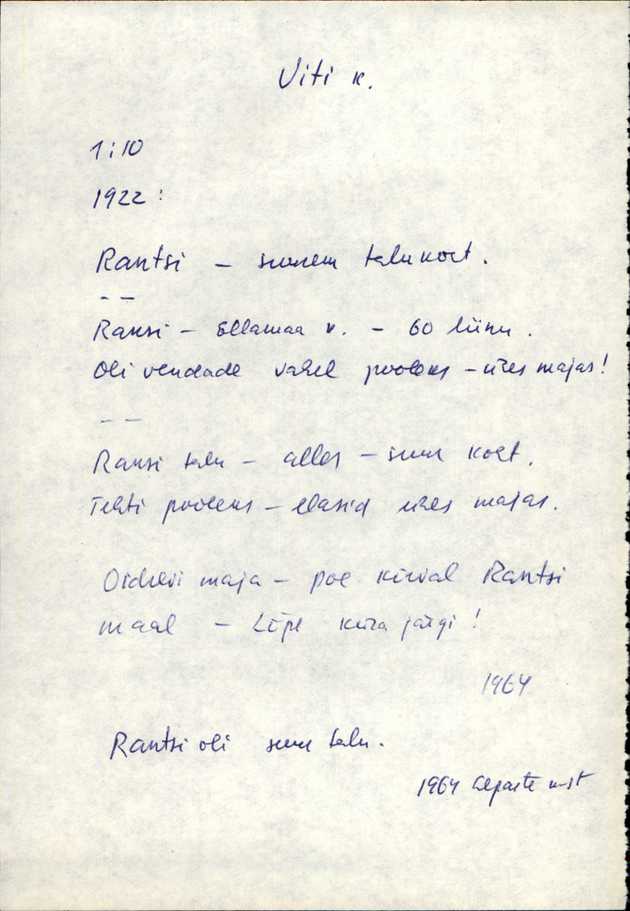 Viti k.
1:10
1922:
Rantsi – suurem talukoht.
– –
Ransi – Ellamaa v. – 60 tiinu.
Oli vendade vahel pooleks – ühes majas!
– –
Ransi talu – alles – suur koht.
Tehti pooleks – elasid ühes majas.
maja – poe kõrval Rantsi
maal – Lõpe kõra järgi!
1964
Rantsi oli suur talu.
1964